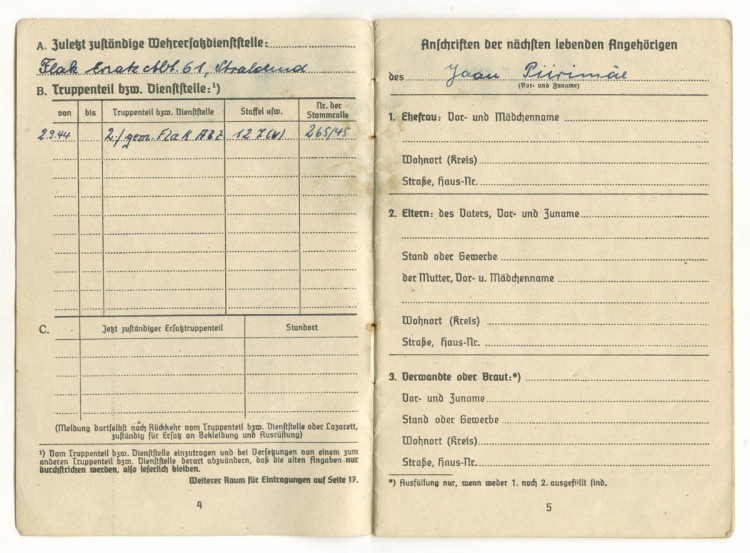 A. Zuletzt zuständige Wehrersatzdienststelle:
Flak Ersatz Abt. 61, Stralsund
B. Truppenteil bzw. Dienststelle:¹)
von bis Truppenteil bzw. Dienststelle Staffel usw. Nr. der Stammrolle
2.9.44 2./gem. Flak Abt 127(v) 265/45
C. Jetzt zuständiger Ersatztruppenteil Standort
(Meldung dortselbst nach Rückkehr vom Truppenteil bzw. Dienststelle oder Lazarett,
zuständig für Ersatz an Bekleidung und Ausrüstung)
¹) Vom Truppenteil bzw. Dienststelle einzutragen und bei Versetzungen von einem zum
anderen Truppenteil bzw. Dienststelle derart abzuändern, daß die alten Angaben nur
durchstrichen werden, also leserlich bleiben.
Weiterer Raum für Eintragungen auf Seite 17.
4
Anschriften der nächsten lebenden Angehörigen
des Jaan Piirimäe
(Vor- und Zuname)
1. Ehefrau: Vor- und Mädchenname
Wohnort (Kreis)
Straße, Haus-Nr.
2. Eltern: des Vaters, Vor- und Zuname
Stand oder Gewerbe
der Mutter, Vor- u. Mädchenname
Wohnort (Kreis)
Straße, Haus-Nr.
3. Verwandte oder Braut:*)
Vor- und Zuname
Stand oder Gewerbe
Wohnort (Kreis)
Straße, Haus-Nr.
*) Ausfüllung nur, wenn weder 1. noch 2. ausgefüllt sind.
5